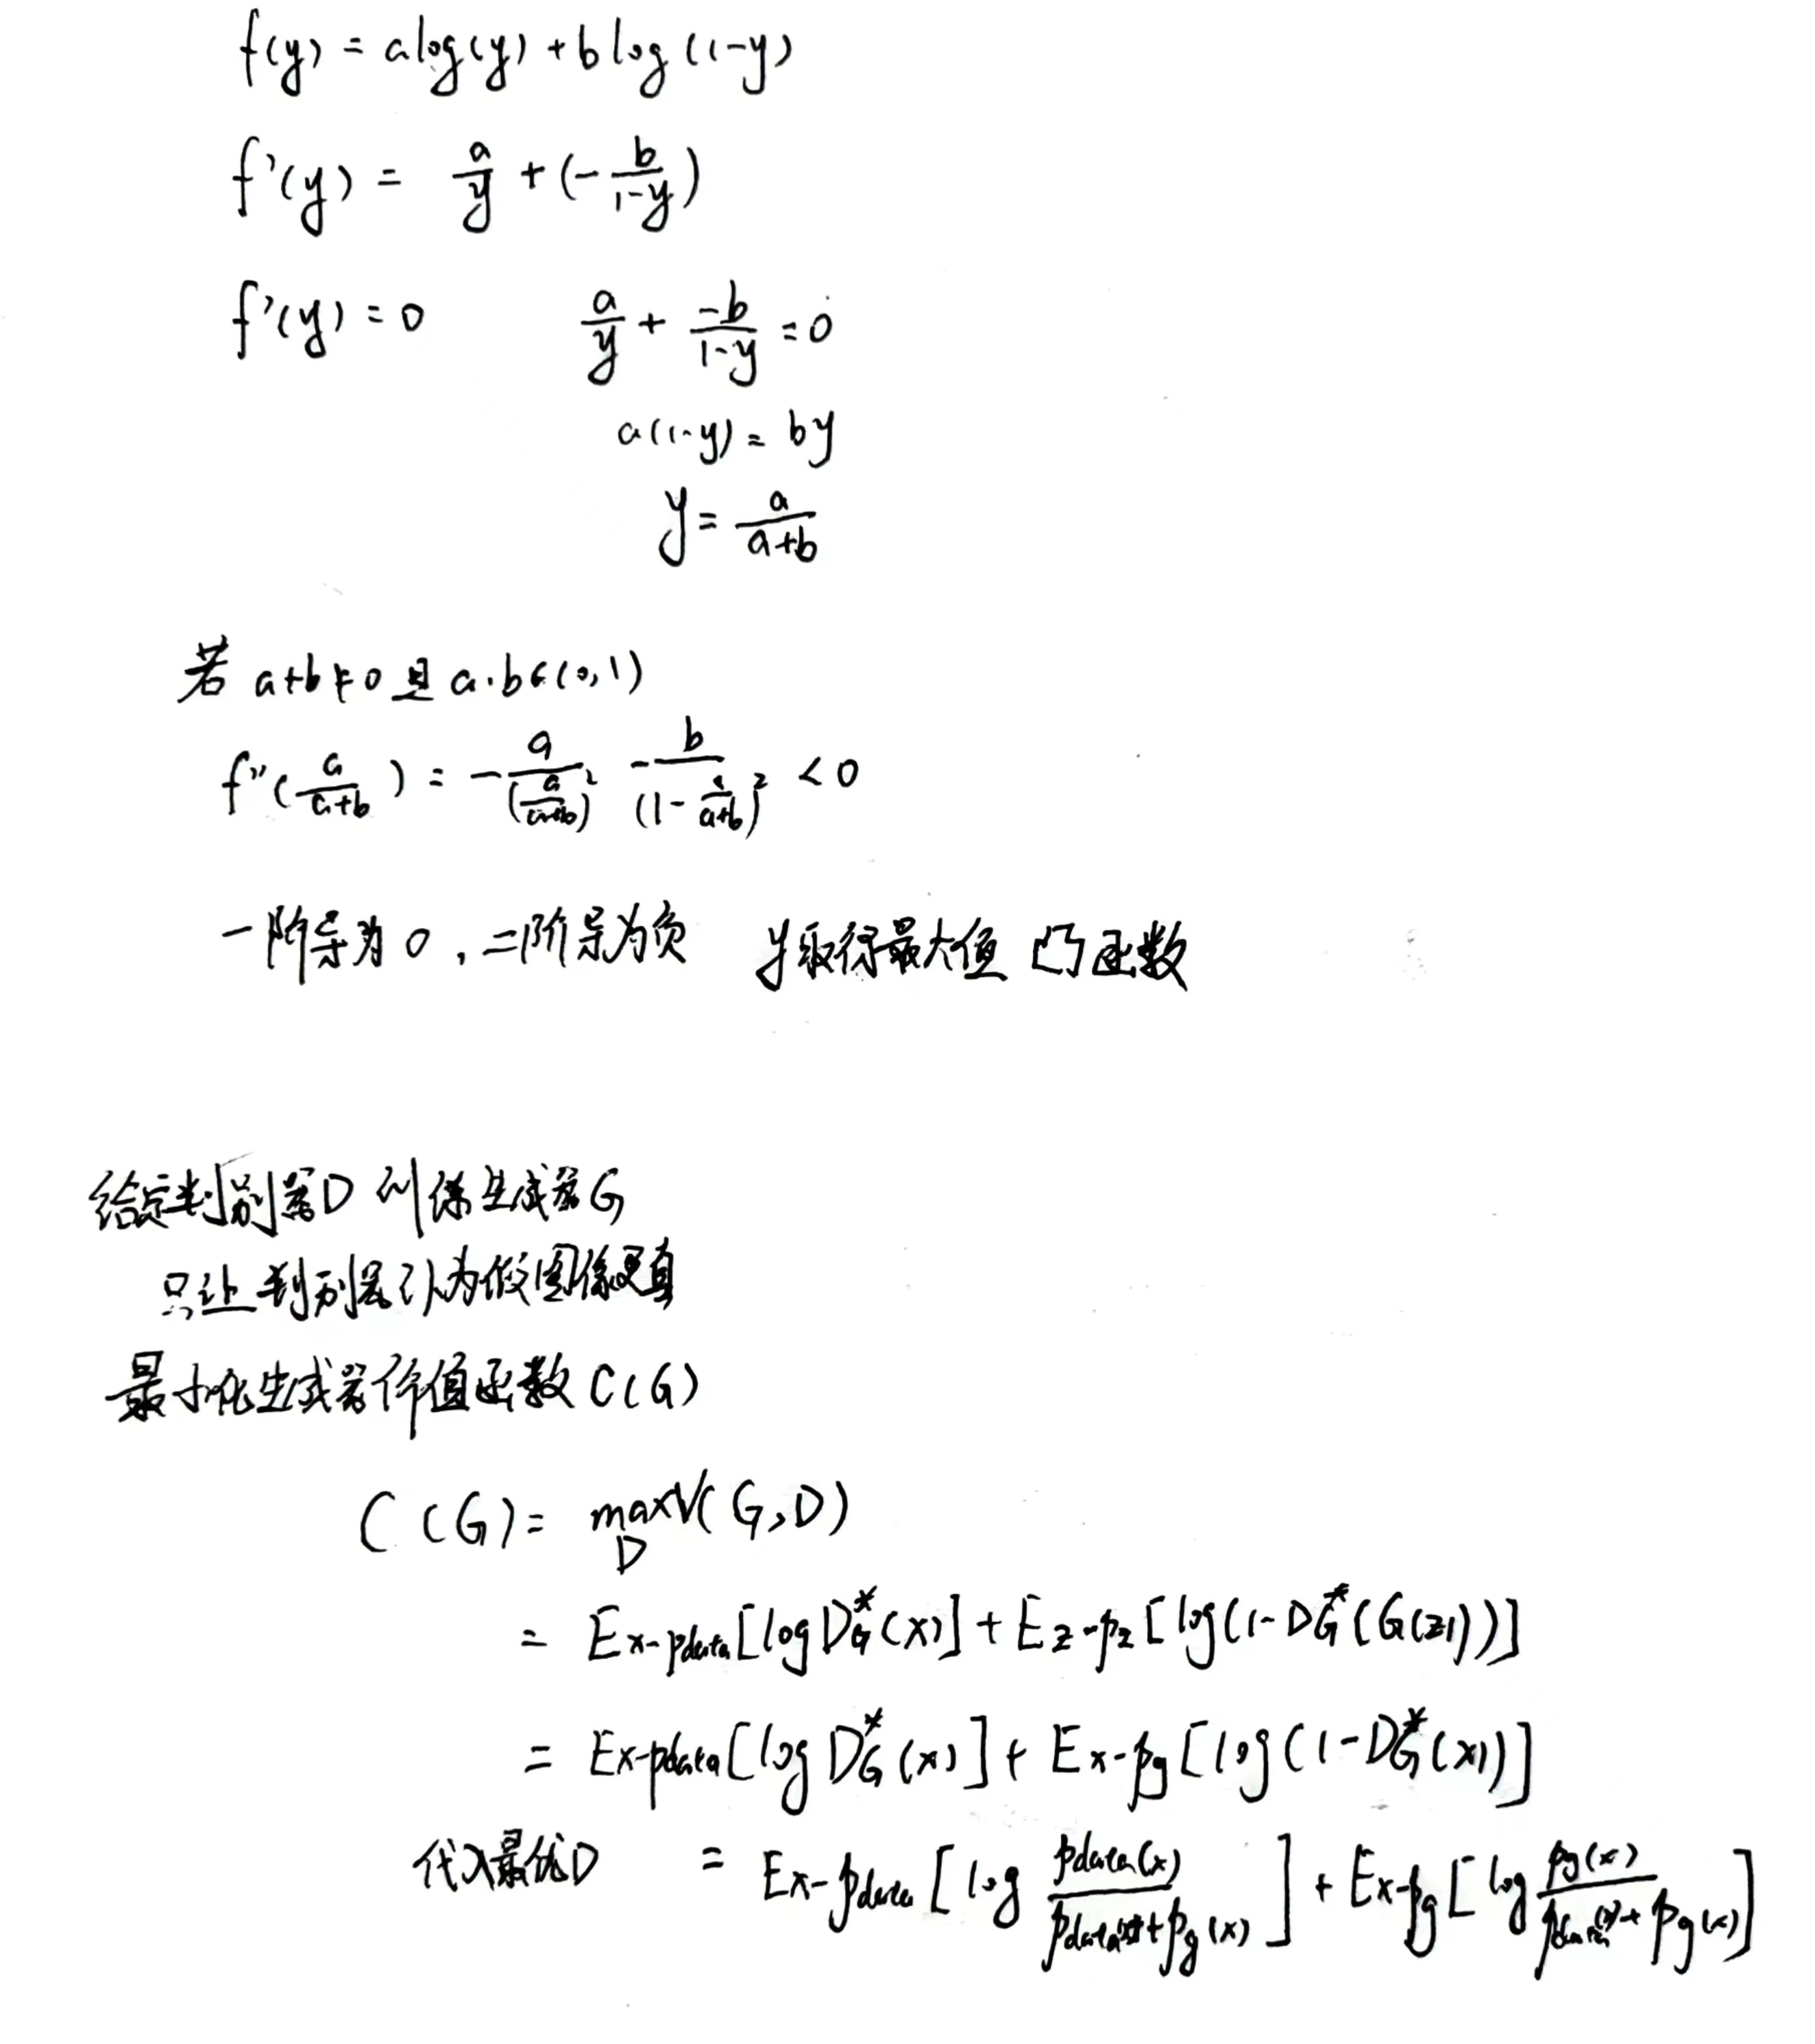 f(y) = a log(y) + b log(1-y)
f'(y) = a/y + (-b/(1-y))
f'(y) = 0    a/y + -b/(1-y) = 0
a(1-y) = by
y = a/(a+b)
若 a+b≠0 且 a.b∈(0,1)
f''(a/(a+b)) = -a/(a/(a+b))² - b/(1-a/(a+b))² < 0
一阶导为0,二阶导为负 y取得最大值 凸函数
给定判别器D 训练生成器G
只让判别器认为假图像更真
最小化生成器价值函数 C(G)
C(G) = max_D V(G,D)
= E x~pdata [log D*G(x)] + E z~pz [log(1-D*G(G(z)))]
= E x~pdata [log D*G(x)] + E x~pg [log(1-D*G(x))]
代入最优D = E x~pdata [log pdata(x)/(pdata(x)+pg(x))] + E x~pg [log pg(x)/(pdata(x)+pg(x))]